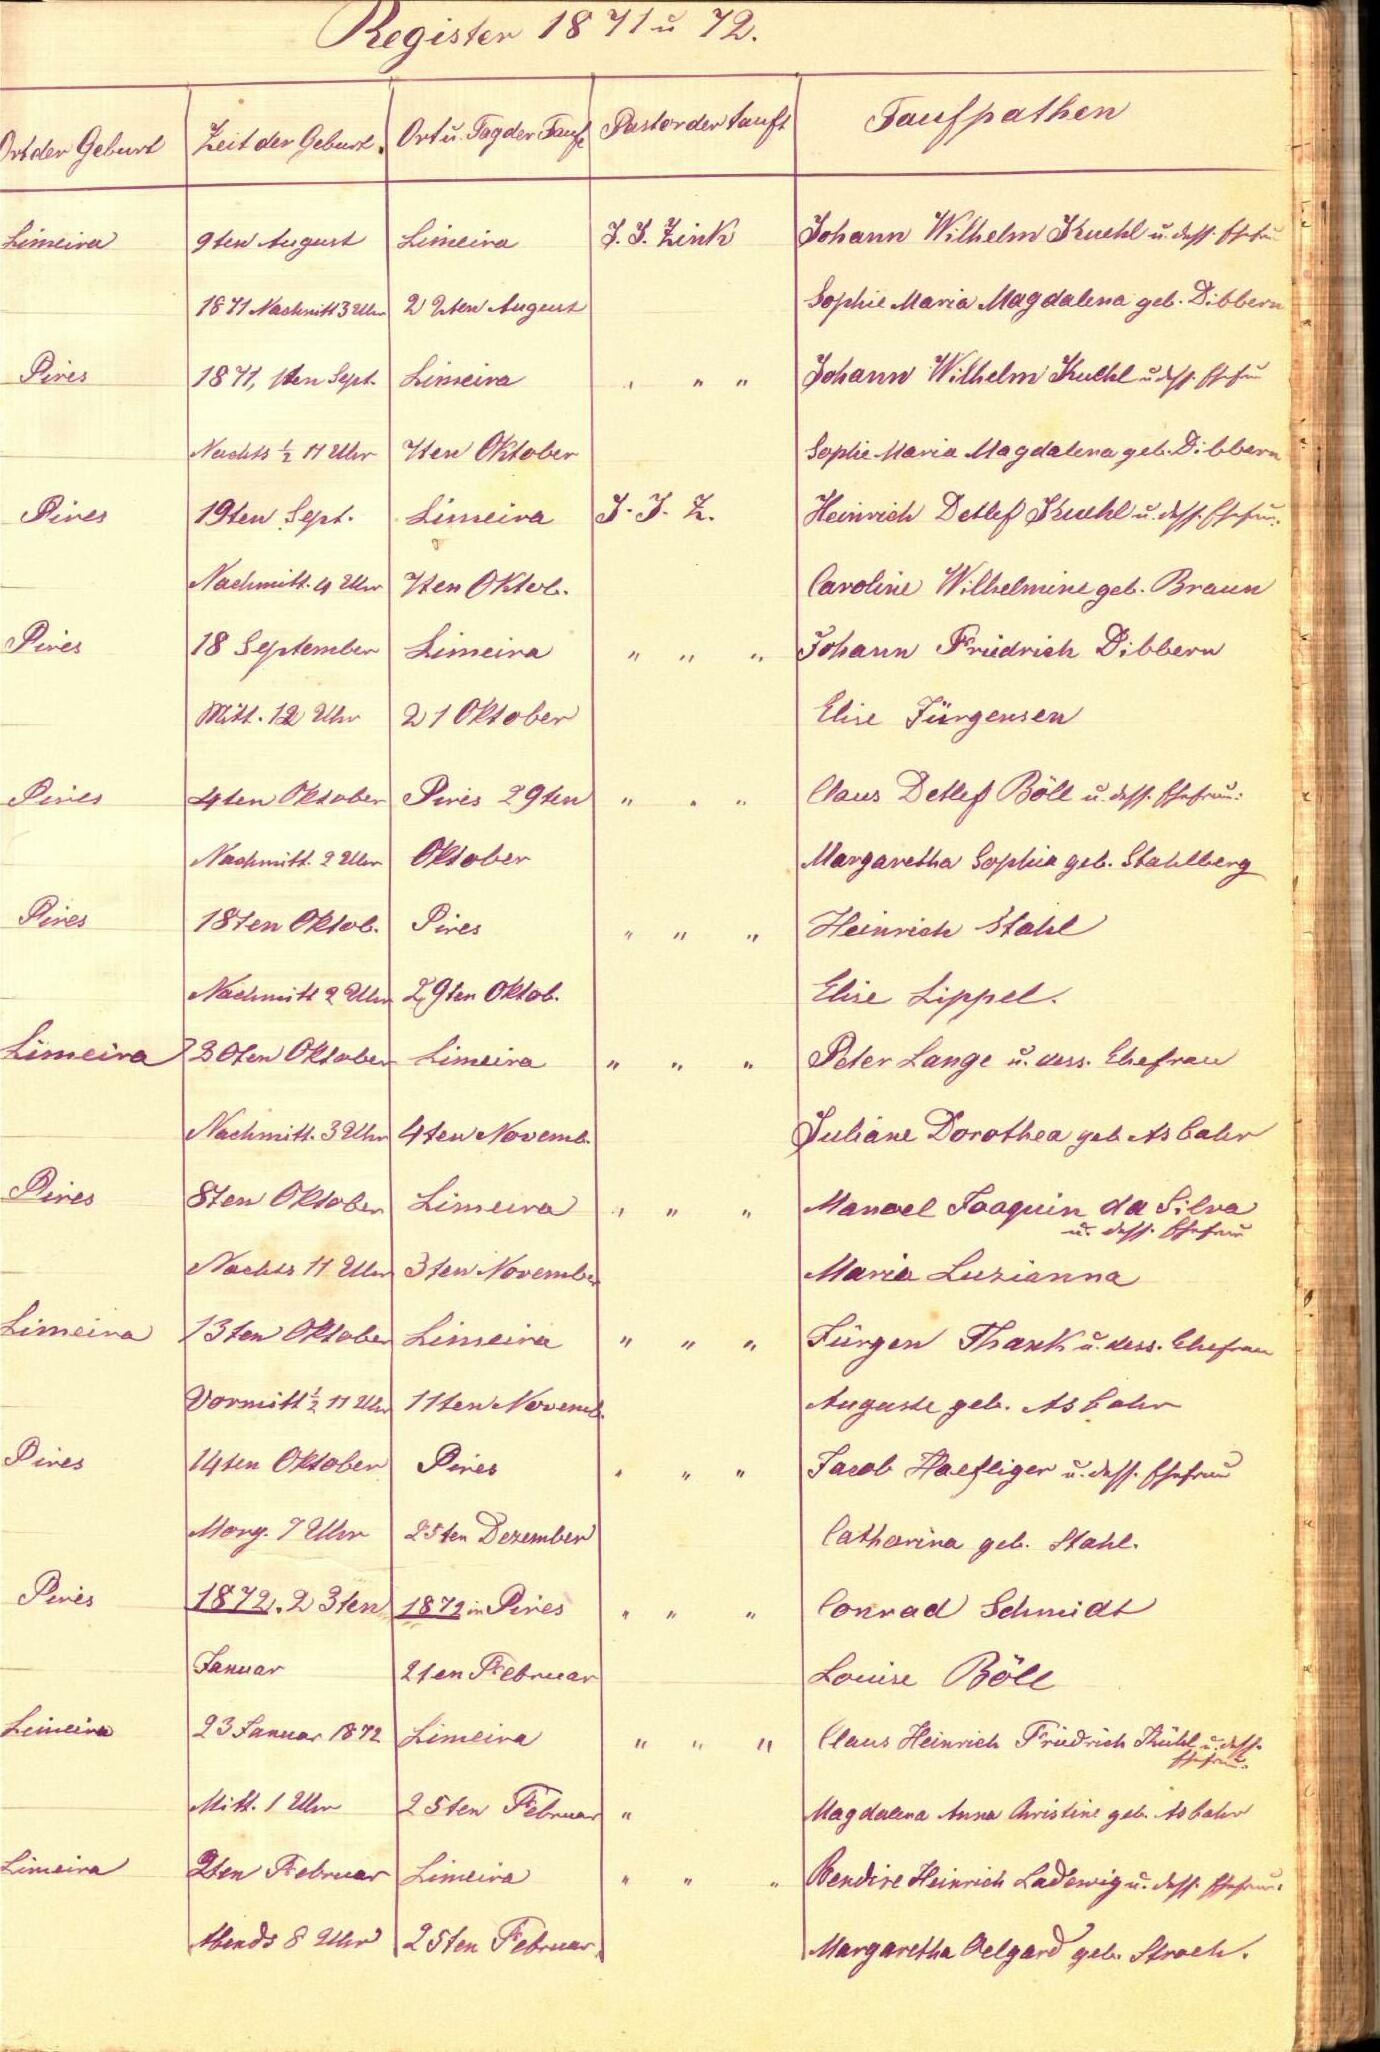 Register 1871 u 72.
Ort der Geburt Zeit der Geburt. Ort u. Tag der Taufe Pastor der tauft Taufpathen
Limeira 9ten August Limeira J. J. Zink Johann Wilhelm Kuehl u. dess. Ehefrau
1871 Nachmitt 3 Uhr 22ten August Sophie Maria Magdalena geb. Dibbern
Pires 1871, 1ten Sept. Limeira " " " Johann Wilhelm Kuehl u. dess. Ehefrau
Nachts ½ 11 Uhr 7ten Oktober Sophie Maria Magdalena geb. Dibbern
Pires 19ten Sept. Limeira J. J. Z. Heinrich Detlef Kuehl u. dess. Ehefrau.
Nachmitt. 4 Uhr 7ten Oktob. Caroline Wilhelmine geb. Braun
Pires 18 September Limeira " " " Johann Friedrich Dibbern
Mitt. 12 Uhr 21 Oktober Elise Jürgensen
Pires 4ten Oktober Pires 29ten " " " Claus Detlef Böll u. dess. Ehefrau:
Nachmitt. 2 Uhr Oktober Margaretha Sophia geb. Stahlberg
Pires 18ten Oktob. Pires " " " Heinrich Stahl
Nachmitt 2 Uhr 29ten Oktob. Elise Lippel.
Limeira 30ten Oktober Limeira " " " Peter Lange u. dess. Ehefrau
Nachmitt. 3 Uhr 4ten Novemb. Juliane Dorothea geb Asbahr
Pires 8ten Oktober Limeira " " " Manoel Joaquin da Silva
u. dess. Ehefrau
Nachts 11 Uhr 3ten November Maria Luzianna
Limeira 13ten Oktober Limeira " " " Jürgen Thank u. dess. Ehefrau
Vormitt ½ 11 Uhr 11ten Novemb. Auguste geb. Asbahr
Pires 14ten Oktober Pires " " " Jacob Haefliger u. dess. Ehefrau
Morg. 7 Uhr 25ten Dezember Catharina geb. Stahl.
Pires 1872. 23ten 1872 in Pires " " " Conrad Schmidt
Januar 2ten Februar Louise Böll
Limeira 23 Januar 1872 Limeira " " " Claus Heinrich Friedrich Kühl u. dess.
Ehefrau.
Mitt. 1 Uhr 25ten Februar " Magdalena Anna Christine geb. Asbahr
Limeira 2ten Februar Limeira " " " Bendixe Heinrich Ladewig u. dess. Ehefrau:
Abends 8 Uhr 25ten Februar. Margaretha Oelgard geb. Stroeh.